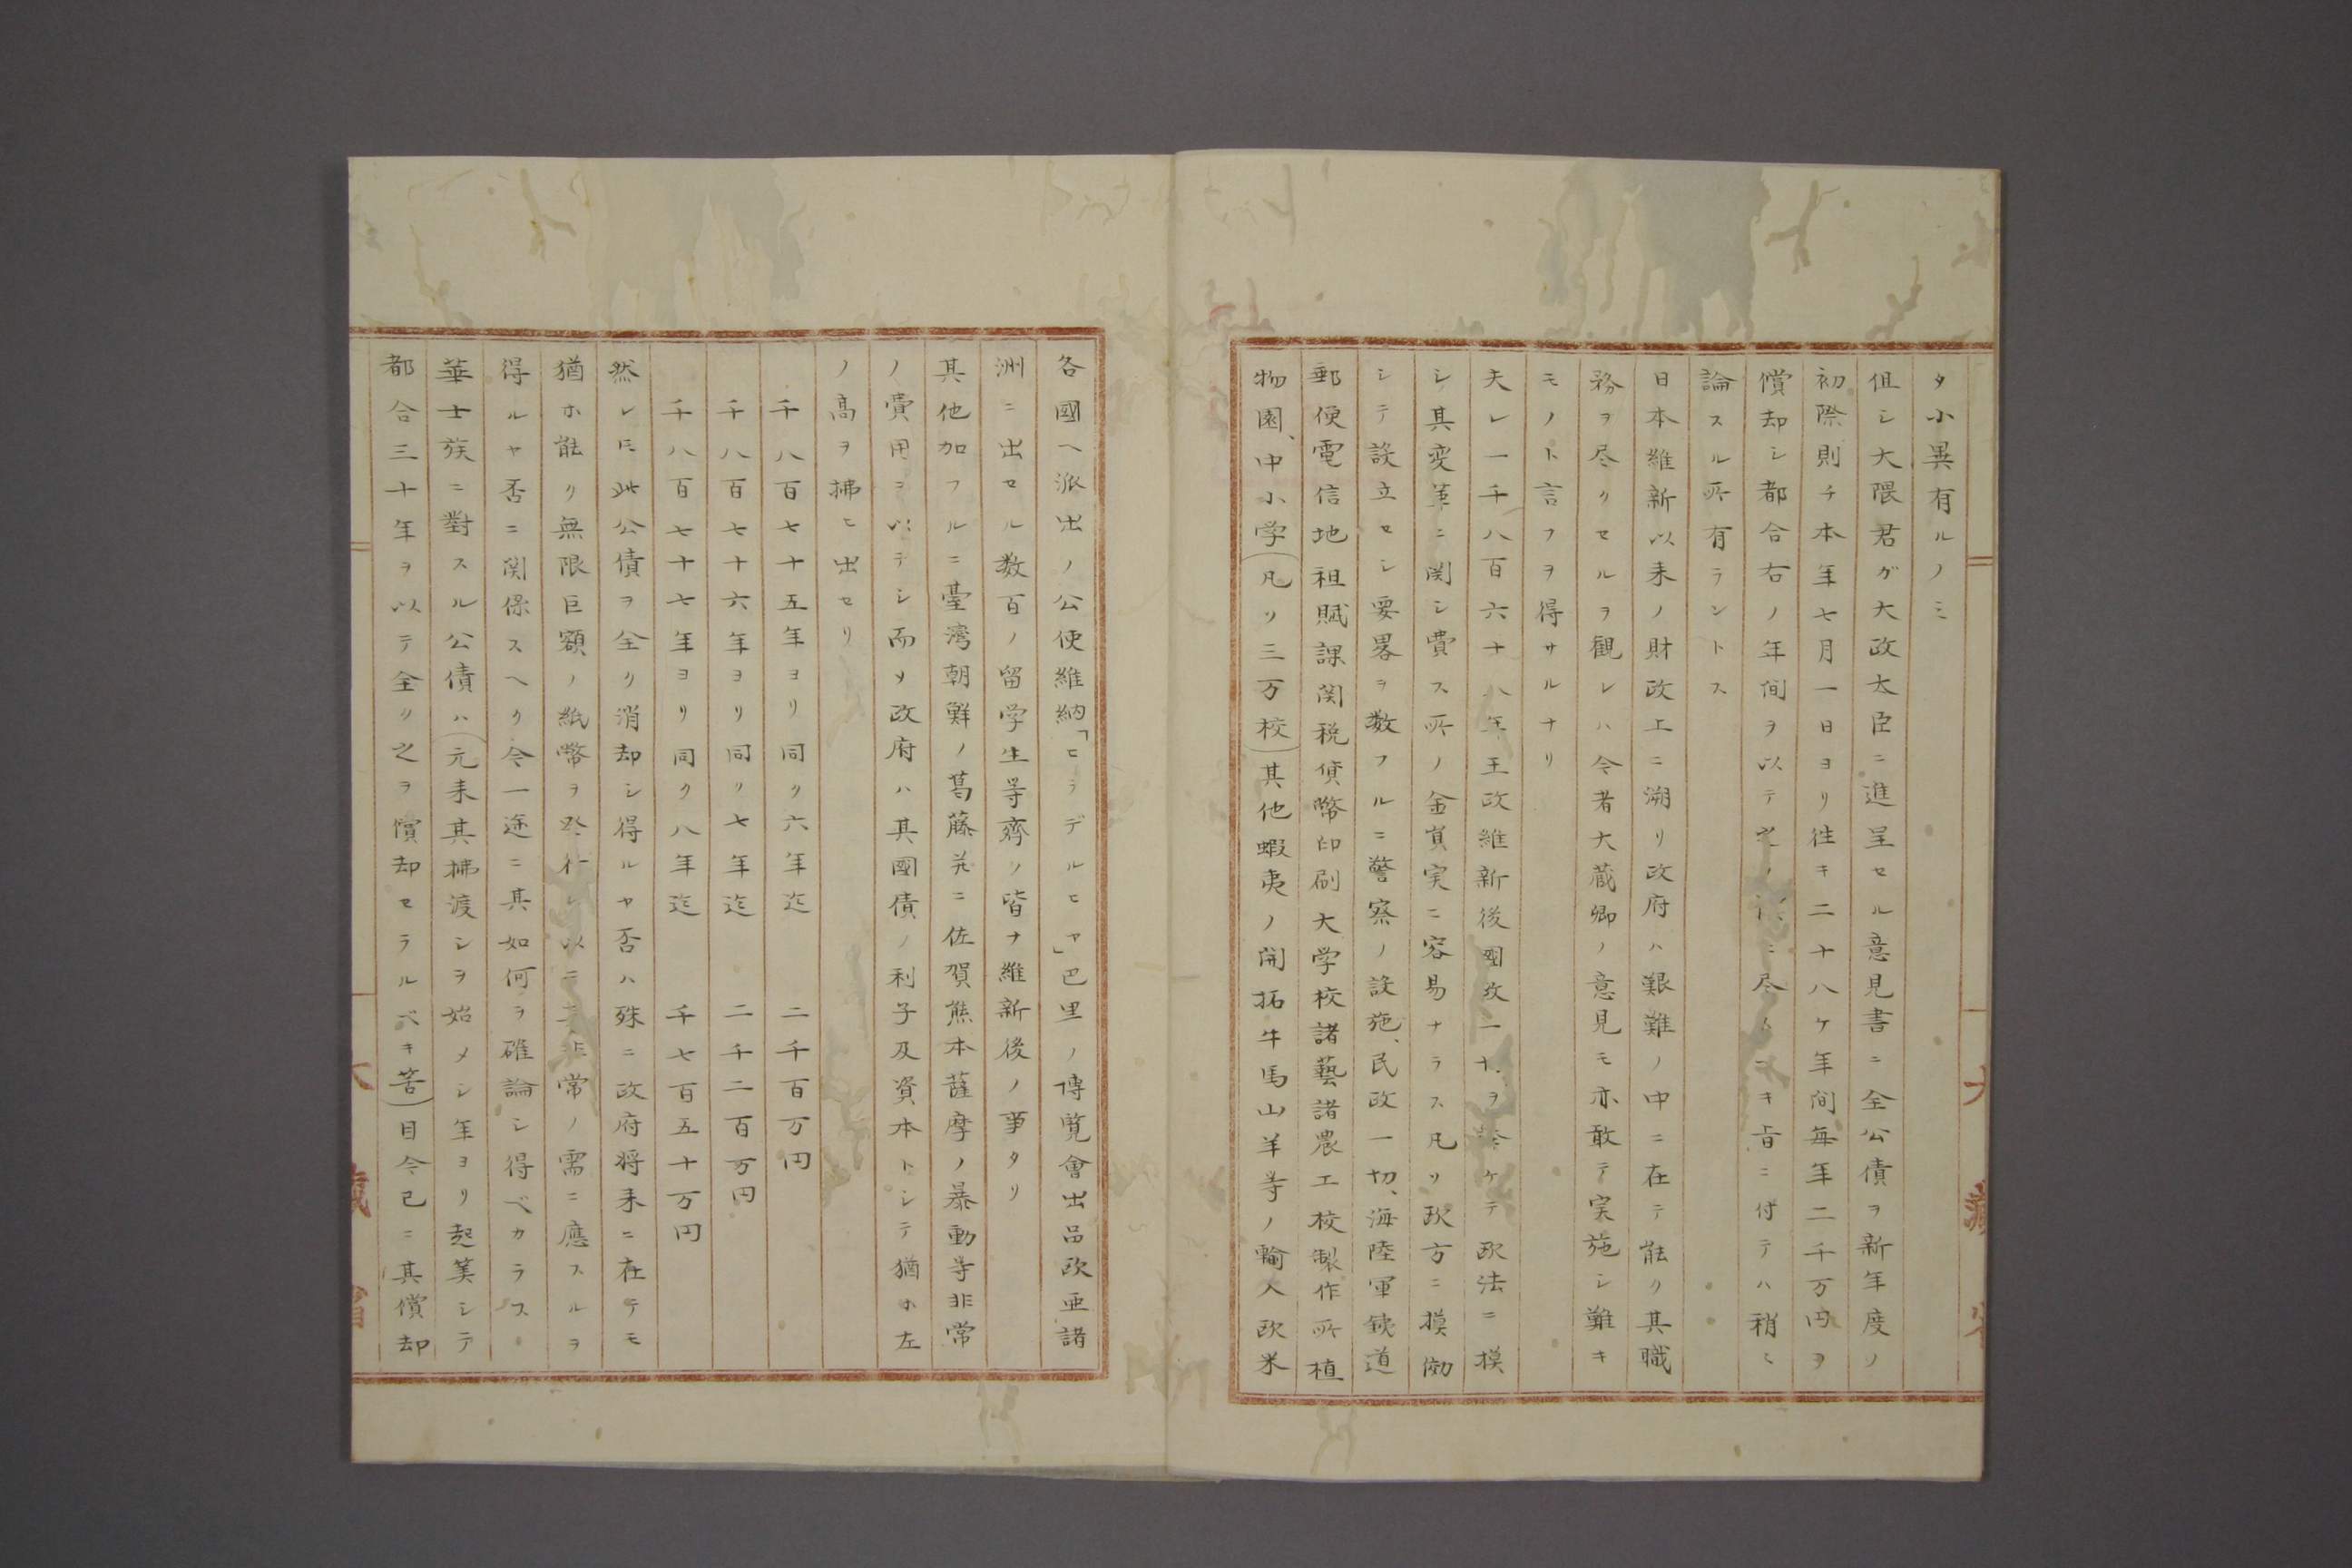 タ小異有ルノミ
但シ大隈君ガ大政太臣ニ進呈セル意見書ニ全公債ヲ新年度ノ
初際則チ本年七月一日ヨリ往キ二十八ケ年间毎年二千万円ヲ
償却シ都合右ノ年间ヲ以テ之ノ尽キ旨ニ付テハ稍〻
論スル所有ラントス
日本維新以来ノ財政上ニ溯リ政府ハ艱難ノ中ニ在テ能ク其職
務ヲ尽クセルヲ観レハ今者大蔵卿ノ意見モ亦敢テ実施シ難キ
モノト言フヲ得サルナリ
夫レ一千八百六十八年王政維新後国政一ヲケテ欧法ニ模
シ其変革ニ関シ費ス所ノ金員実ニ容易ナラス凡ソ欧方ニ摸倣
シテ設立セシ要畧ヲ数フルニ警察ノ設施、民政一切、海陸軍鉄道
郵便電信地祖賦課関税貨幣印刷大学校諸藝諸農工校製作所植
物園、中小学(凡ソ三万校)其他蝦夷ノ開拓牛馬山羊等ノ輸入欧米
各國ヘ派出ノ公使維納「ヒラデルヒヤ」巴里ノ博覧會出品欧亜諸
洲ニ出セル数百ノ留学生等齊ノ皆ナ維新後ノ事タリ
其他加フルニ臺湾朝鮮ノ葛藤并ニ佐賀熊本薩摩ノ暴動等非常
ノ費用ヲ以テシ而メ政府ハ其國債ノ利子及資本トシテ猶ホ左
ノ高ヲ拂ヒ出セリ
千八百七十五年ヨリ同ク六年迄 二千百万円
千八百七十六年ヨリ同ク七年迄 二千二百万円
千八百七十七年ヨリ同ク八年迄 千七百五十万円
然レ𪜈此公債ヲ全ク消却シ得ルヤ否ハ殊ニ政府将来ニ在テモ
猶ホ能ク無限巨額ノ紙幣ヲ発行シ以テ其非常ノ需ニ應スルヲ
得ルヤ否ニ関係スヘク今一途ニ其如何ヲ確論シ得ベカラス
華士族ニ對スル公債ハ(元来其拂渡シヲ始メシ年ヨリ起筭シテ
都合三十年ヲ以テ全ク之ヲ償却セラルベキ筈)目今已ニ其償却
大蔵省